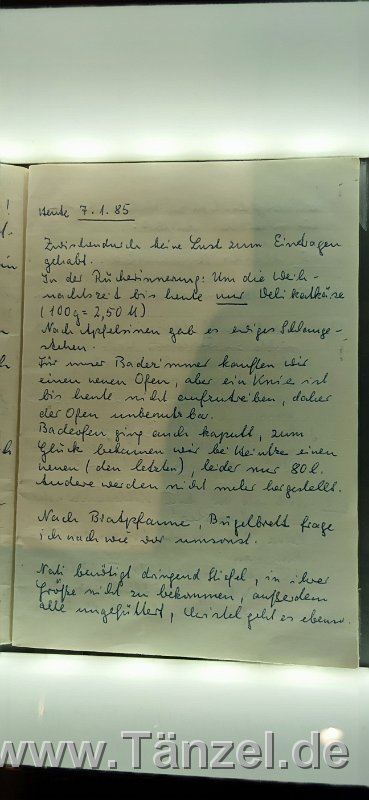 Heute 7.1.85
Zwischendurch keine Lust zum Eintragen
gehabt.
In der Rückerinnerung: Um die Weih-
nachtszeit bis heute nur Delikatkäse
(100g = 2,50 M)
Nach Apfelsinen gab es ewiges Schlange-
stehen.
Für unser Badezimmer kauften wir
einen neuen Ofen, aber ein Knie ist
bis heute nicht aufzutreiben, daher
der Ofen unbenutzbar.
Badeofen ging auch kaputt, zum
Glück bekamen wir bei Heintze einen
neuen (den letzten), leider nur 80 l.
Andere werden nicht mehr hergestellt.
Nach Bratpfanne, Bügelbrett frage
ich nach wie vor umsonst.
Nati benötigt dringend Stiefel, in ihrer
Größe nicht zu bekommen, außerdem
alle ungefüttert, Christel geht es ebenso.
www.Tänzel.de